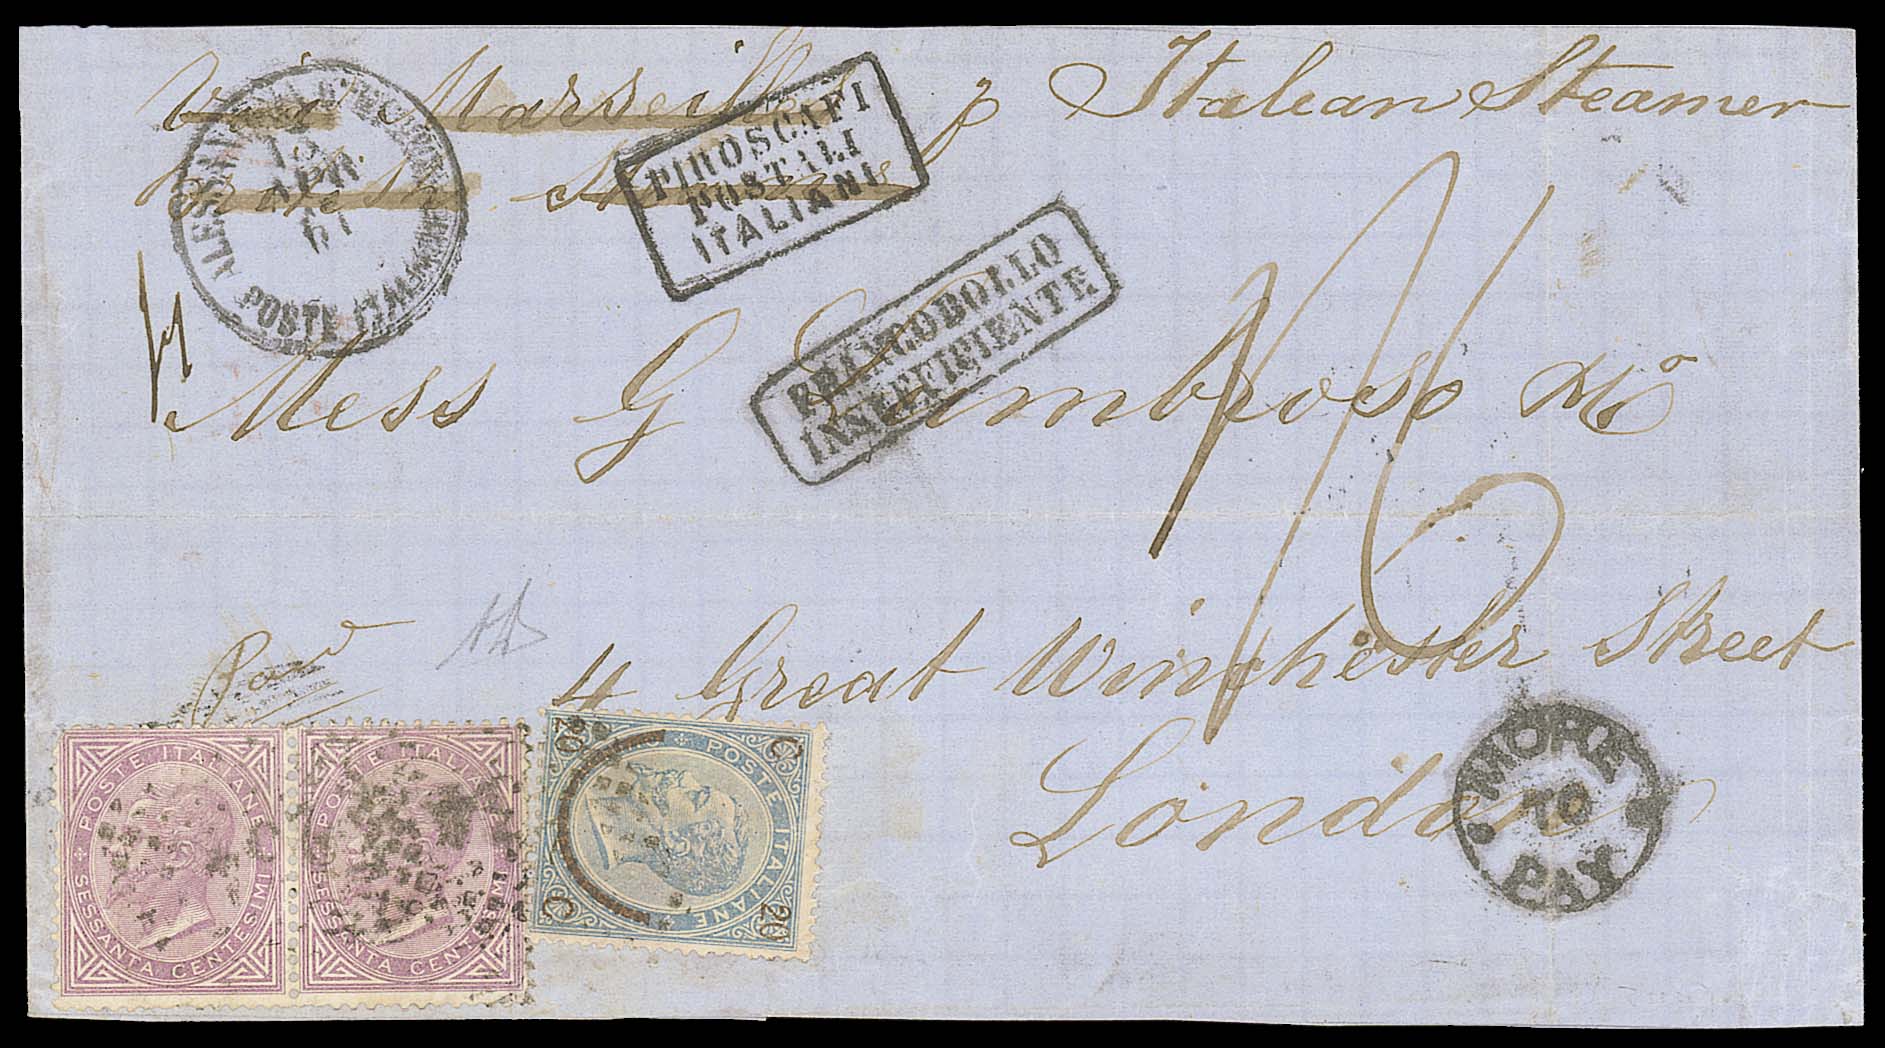 Via Marseille p Italian Steamer
British
ALESSANDRIA D'EGITTO
13
APR
67
POSTE ITALIANE
PIROSCAFI
POSTALI
ITALIANI
FRANCOBOLLO
INSUFFICIENTE
Mess G Ambroso &Co
1/6
4 Great Winchester Street
London
MORE
TO
PAY
POSTE ITALIANE
SESSANTA CENTESIMI
POSTE ITALIANE
SESSANTA CENTESIMI
C 20
POSTE ITALIANE
20 C